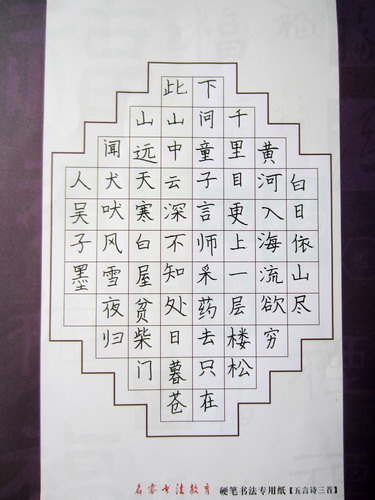 白日依山尽
黄河入海流欲穷
千里目更上一层楼松
下问童子言师采药去只在
此山中云深不知处日暮苍
山远天寒白屋贫柴门
闻犬吠风雪夜归
人吴子墨
名家书法教育 硬笔书法专用纸【五言诗三首】